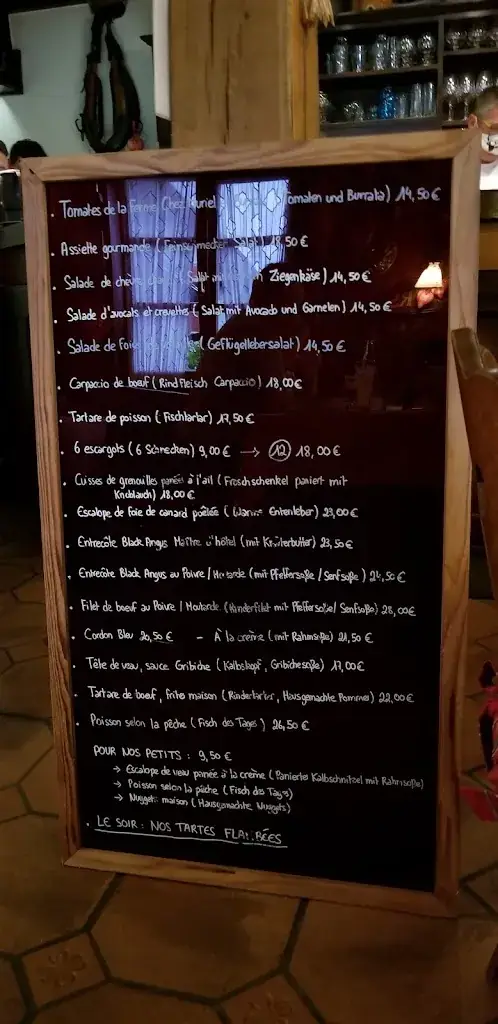 . Tomates de la Ferme Chez Muriel Tomaten und Burrata) 14,50 €
. Assiette gourmande ( Feinschmecker Salat) 18,50 €
. Salade de chèvre Ziegenkäse) 14,50 €
. Salade d'avocats et crevettes ( Salat mit Avocado und Garnelen) 14,50 €
. Salade de foies ( Geflügellebersalat) 14,50 €
. Carpaccio de boeuf ( Rind Fleisch Carpaccio) 18,00 €
. Tartare de poisson ( Fischtartar) 17,50 €
. 6 escargots ( 6 Schnecken) 9,00 € → 12 18,00 €
. Cuisses de grenouilles panées à l'ail ( Froschschenkel paniert mit
Knoblauch) 18,00 €
. Escalope de foie de canard poêlée ( Warme Entenleber) 23,00 €
. Entrecôte Black Angus Maître d'hôtel (mit Kräuterbutter) 23,50 €
. Entrecôte Black Angus au Poivre / Moutarde (mit Pfeffersoße / Senfsoße) 24,50 €
. Filet de boeuf au Poivre / Moutarde (Rinderfilet mit Pfeffersoße / Senfsoße) 28,00 €
. Cordon Bleu 20,50 € - À la crème (mit Rahmsoße) 21,50 €
. Tête de veau, sauce Gribiche ( Kalbskopf, Gribichesoße) 17,00 €
. Tartare de boeuf, frites maison ( Rindertartar, Hausgemachte Pommes) 22,00 €
. Poisson selon la pêche ( Fisch des Tages ) 26,50 €
POUR NOS PETITS : 9,50 €
→ Escalope de veau panée à la crème ( Panierte Kalbschnitzel mit Rahmsoße)
→ Poisson selon la pêche ( Fisch des Tages)
→ Nuggets maison ( Hausgemachte Nuggets)
. LE SOIR : NOS TARTES FLAMBÉES